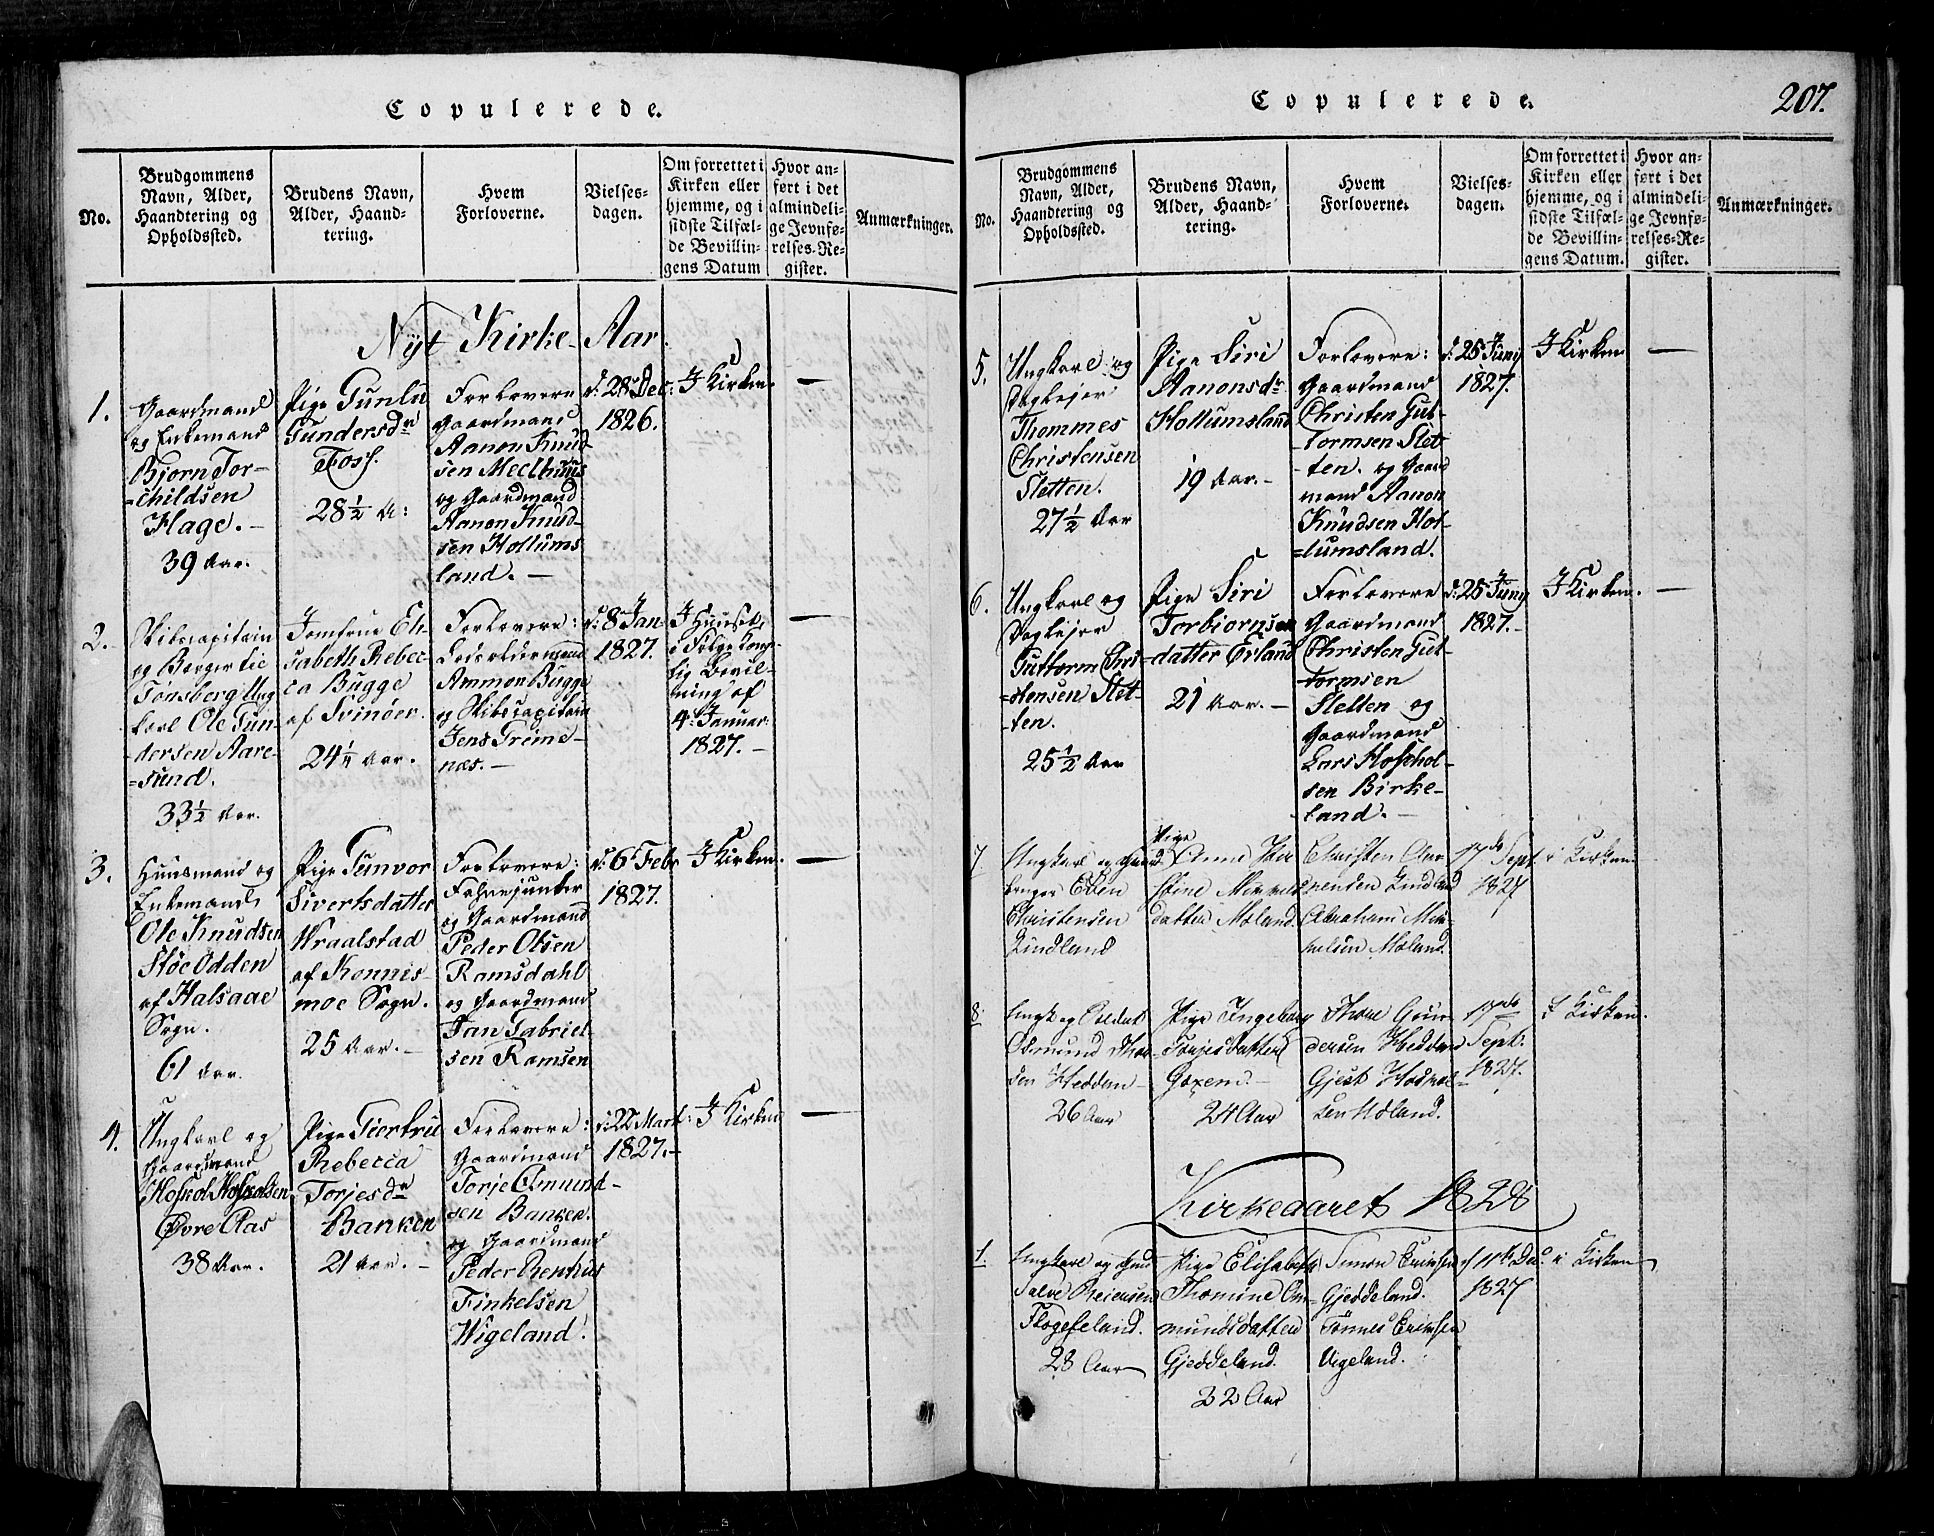 Copulerede.
No.
Brudgommens
Navn, Alder,
Haandtering og
Opholdssted.
Brudens Navn,
Alder, Haand-
tering.
Hvem
Forloverne.
Vielses-
dagen.
Om forrettet i
Kirken eller
hjemme, og i
sidste Tilfæl-
de Bevillin-
gens Datum
Hvor an-
ført i det
almindeli-
ge Jevnfø-
relses-Re-
gister.
Anmærkninger.
Nyt Kirke-Aar.
1.
Gaardmand
og Enkemand
Bjorn Tor-
=childsen
Flage.-
39 Aar.
Pige Gunlu
Gundersdr
Foss.
28½ A:
Forlovere
Gaardmand
Aanon Knud-
sen Meelhuus
og Gaardmand
Aanon Knud-
sen Hollums
land.-
d: 28 Dec:
1826.
I Kirken.
—
2.
Skibscapitain
og Borger til
Tønsberg Ung
karl Ole Gun-
dersen Aare-
=sund.
33½ Aar.
Jomfrue Eli-
sabeth Rebec-
ca Bugge
af Svinøer.
24¼ Aar.
Forlovere:
Ammon Bugge
og Skibscapitain
Jens Grime-
næs.-
d: 8 Jan-
1827.
I Huuset,
i Følge Kong-
lig Bevil-
ning af
4: Januar:
1827.-
—
3.
Huusmand og
Enkemand
Ole Knudsen
Støe Odden
af Halsaae
Sogn.
61 Aar.
Pige Gunvor
Sivertsdatter
Wraalstad
af Konnis-
moe Sogn.
25 Aar.-
Forlovere:
Fahnejunker
og Gaardmand
Peder Olsen
Ramsdahl
og Gaardmand
Jan Gabriel-
sen Ramsen
d: 6 Febr
1827.
I Kirken.
—
4.
Ungkarl og
Gaardmand
Hoskol Hoskolsen
Øvre Aas
38 Aar.
Pige Giertru
Rebecca
Torjesdr
Banken
21 Aar.-
Forlovere:
Gaardmand
Torje Omund-
sen Banken.
og Gaardmand
Peder Renhus
Finkelsen
Wigeland.
d: 22 Mart:
1827.-
I Kirken
—
Copulerede.
207.
No.
Brudgommens
Navn, Alder,
Haandtering og
Opholdssted.
Brudens Navn,
Alder, Haand-
tering.
Hvem
Forloverne.
Vielses-
dagen.
Om forrettet i
Kirken eller
hjemme, og i
sidste Tilfæl-
de Bevillin-
gens Datum.
Hvor an-
ført i det
almindeli-
ge Jevnfø-
relses-Re-
gister.
Anmærkninger.
5.
Ungkarl og
Thommes
Christensen
Sletten.
27½ Aar
Pige Siri
Aanonsdr
Hollumsland
19 Aar.-
Forlovere:
Gaardmand
Christen Gut-
tormsen Slet-
-ten. og Gaard
mand Aanon
Knudsen Hol-
=lumsland.
d: 25 Juny
1827.
I Kirken
—
6.
Ungkarl og
Guttorm Chri-
=stensen Slet-
-ten.
25½ Aar
Pige Siri
Torbiornsen
datter Erland
21 Aar.-
Forlovere
Gaardmand
Christen Gut-
tormsen
Sletten og
Gaardmand
Lars Hoskol-
sen Birke-
land.
d: 25 Juny
1827.-
I Kirken.
—
7
Ungkarl og Gaard
Eben
Christensen
Lindland
Pige
Anne Kir
stine Mikkels
datter Møland.
Christen Aar
nensen Lindland
Abraham Mik-
kelsen Møland.
17de Sept.
1827
i Kirken
8.
Ungk og Soldat
Osmund Thor-
sen Heddan-
26 Aar
Pige Ingeborg
Torjesdatter
24 Aar
Thore Gun-
dersen Heddan
Gjest Hoskol-
sen Møland.
17de
Sept:
1827.
I Kirken.
Kirkeaaret 1828
1
Ungkarl og
Salve Reiersen
28 Aar
Pige Elisabeth
Thomine Om-
mundsdatter
Gjeddeland.
32 Aar
Simon Eriksen
Gjeddeland.
Tønnes Eriksen
Vigeland.
11te Dec.
1827
i Kirken